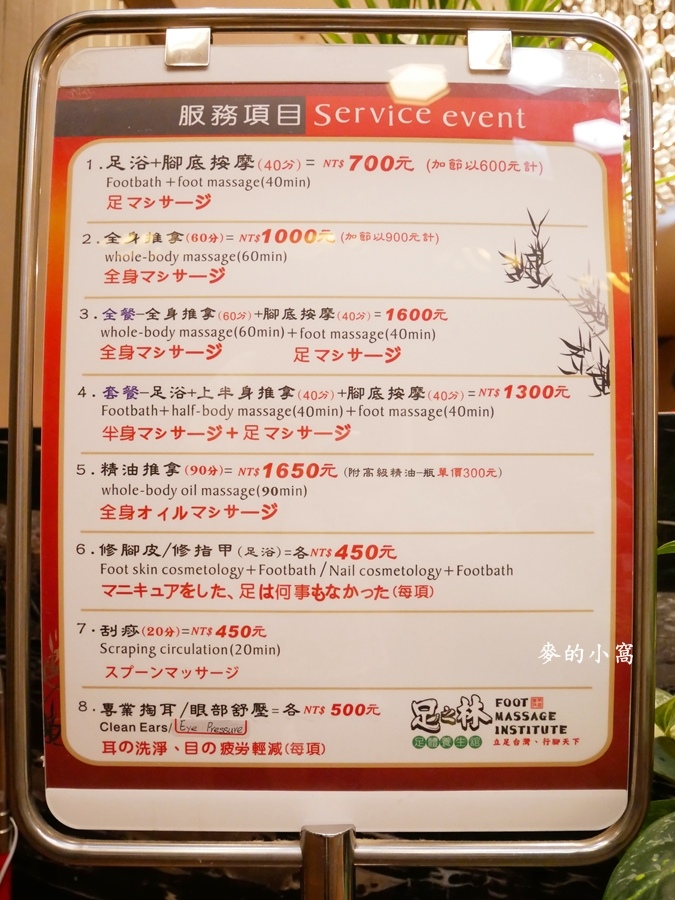 服務項目 Service event
1.足浴+腳底按摩(40分)= NT$700元 (加節以600元計)
Footbath+foot massage(40min)
足マシサージ
2.全身推拿(60分)=NT$1000元(加節以900元計)
whole-body massage(60min)
全身マシサージ
3.全餐-全身推拿(60分)+腳底按摩(40分)=1600元
whole-body massage(60min)+foot massage(40min)
全身マシサージ 足マシサージ
4.套餐-足浴+上半身推拿(40分)+腳底按摩(40分)=NT$1300元
Footbath+half-body massage(40min)+foot massage(40min)
半身マシサージ+足マシサージ
5.精油推拿(90分)= NT$1650元(附高級精油一瓶單價300元)
whole-body oil massage(90min)
全身オィルマシサージ
6.修腳皮/修指甲(足浴)=各NT$450元
Foot skin cosmetology+Footbath/Nail cosmetology+Footbath
マニキュアをした、足は何事もなかった(每項)
7.刮痧(20分)=NT$450元
Scraping circulation(20min)
スプーンマッサージ
8.專業掏耳/眼部舒壓=各NT$500元
Clean Ears/Eye Pressure
耳の洗淨、目の疲労輕減(每項)
足之林 FOOT MASSAGE INSTITUTE
足體養生館 立足台灣、行腳天下
麥的小窩